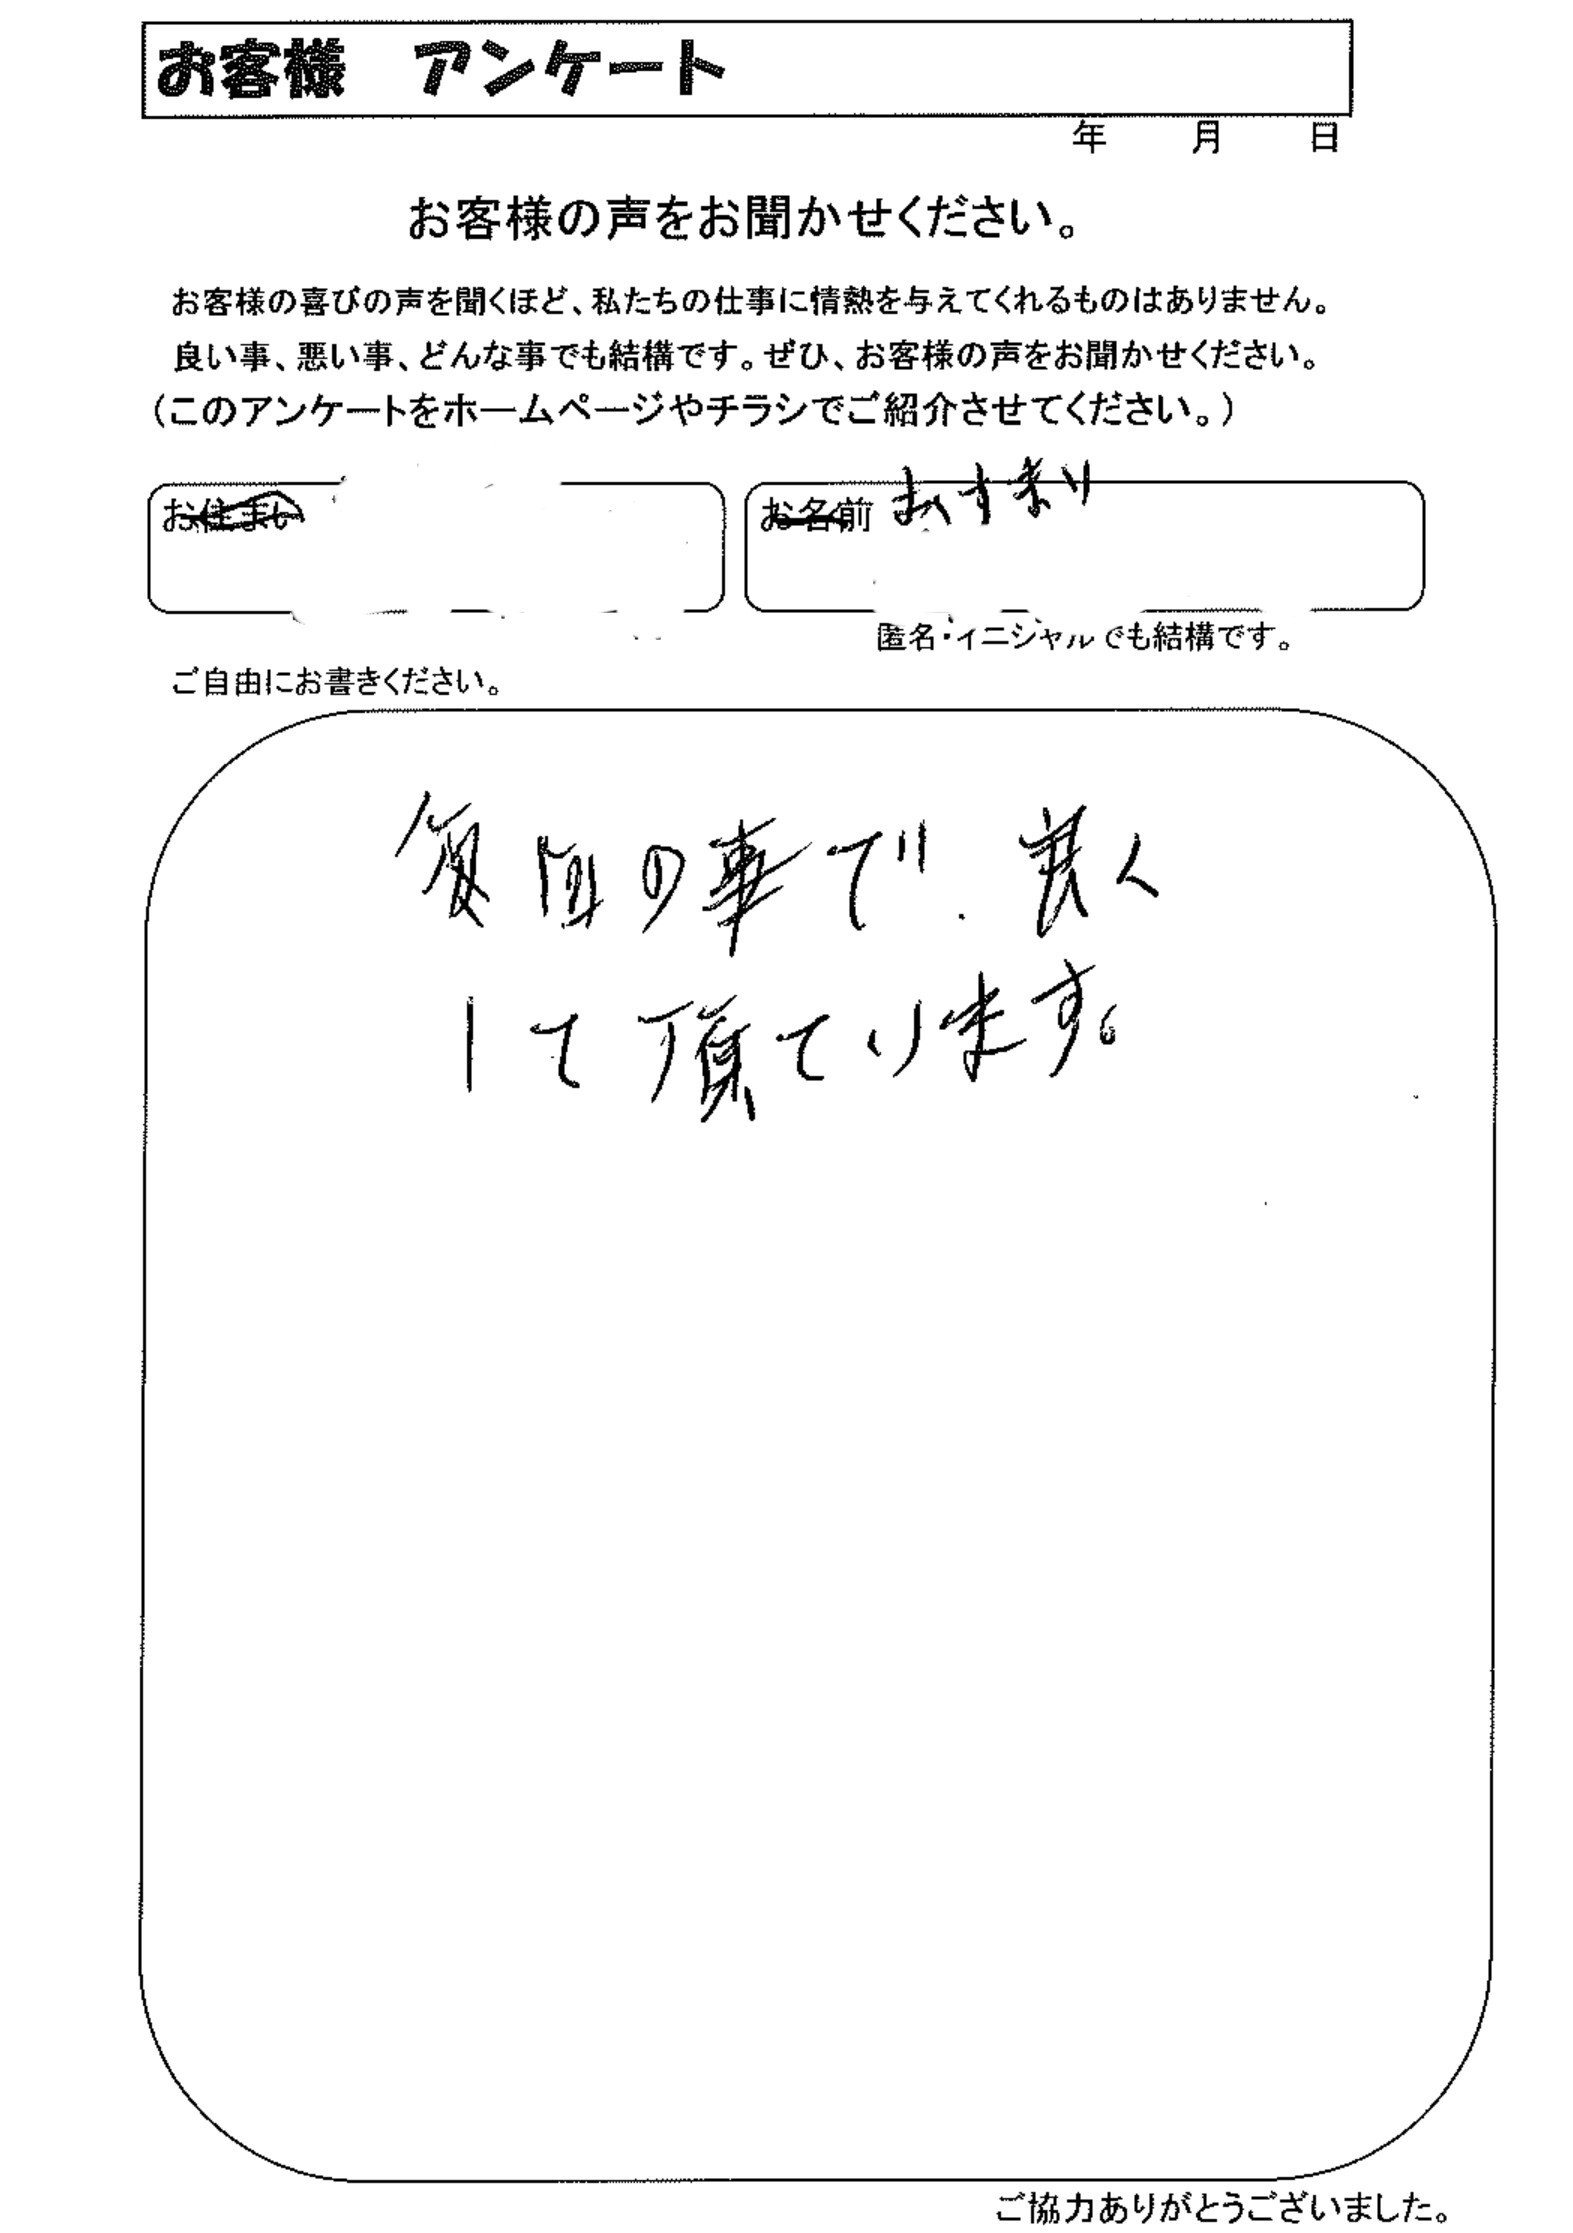 お客様 アンケート
年 月 日
お客様の声をお聞かせください。
お客様の喜びの声を聞くほど、私たちの仕事に情熱を与えてくれるものはありません。
良い事、悪い事、どんな事でも結構です。ぜひ、お客様の声をお聞かせください。
(このアンケートをホームページやチラシでご紹介させてください。)
お住まい
お名前
匿名・イニシャルでも結構です。
ご自由にお書きください。
の事で、良く
して頂ております。
ご協力ありがとうございました。